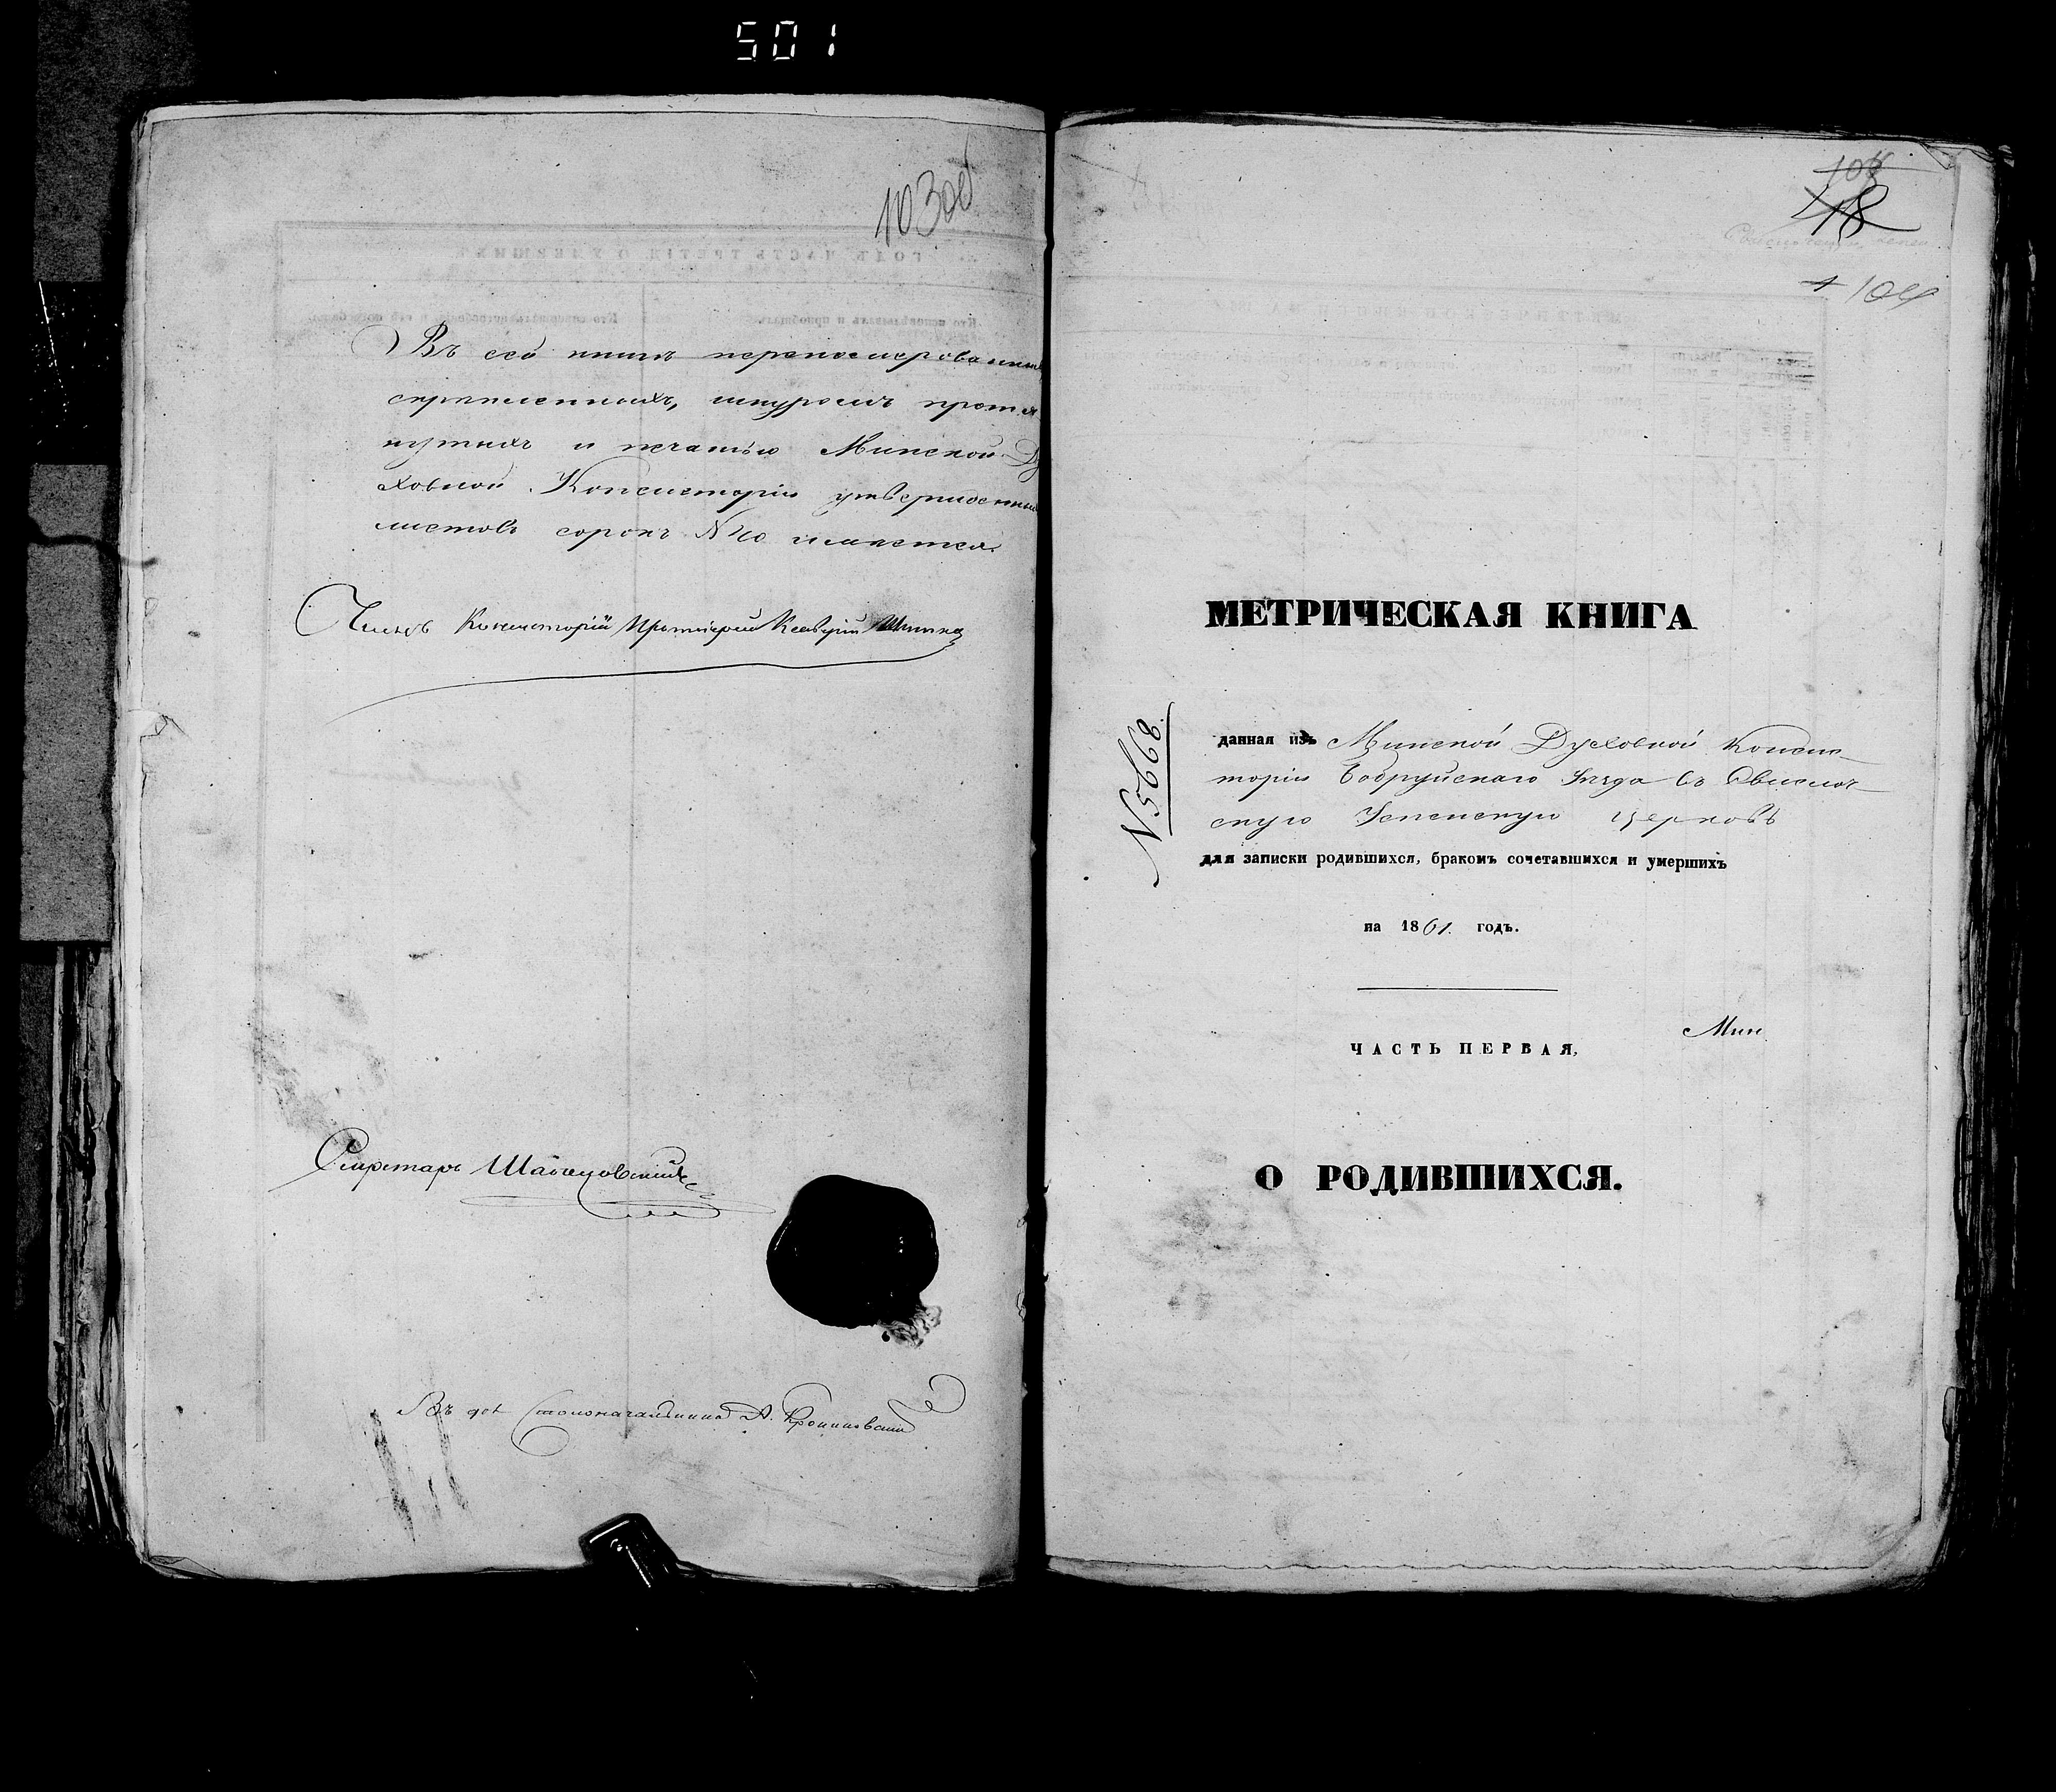 501
103об
Въ сей книгѣ перенумерованныхъ
скрѣпленныхъ, шнуромъ протя
нутыхъ и печатью Минской Ду
ховной Консисторіи утвержденныхъ
листовъ сорокъ N 40 имѣется.
Членъ Консисторіи Протоіерей
Секретарь
Въ дол Столоначальника А.
18
104
МЕТРИЧЕСКАЯ КНИГА
N 5668.
данная изъ Минской Духовной Консис
торіи Бобруйскаго Уѣзда въ Свислоч
скую Успенскую церковь
для записки родившихся, бракомъ сочетавшихся и умершихъ
на 1861. годъ.
Мин
ЧАСТЬ ПЕРВАЯ,
О РОДИВШИХСЯ.